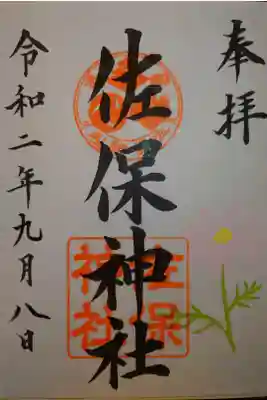 奉拝
佐保神社
佐保
神社
令和二年九月八日